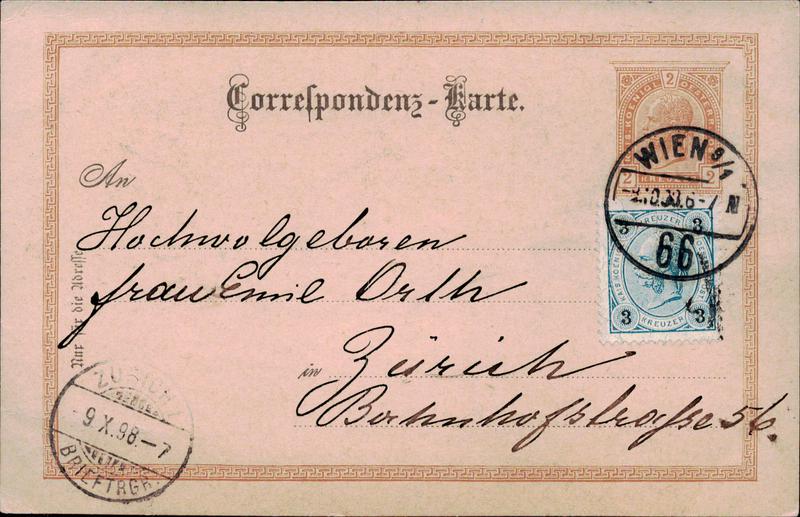 Correspondenz-Karte.
2
KREUZER
2 2
WIEN 9/1
66
N
An
Hochwolgeboren
frau Emil Orth
in Zürich
Bahnhofstrasse 56.
Nur für die Adresse
3 KREUZER 3
3 KREUZER 3
ZÜRICH
9.X.98.-7
BRIEFTRGR.